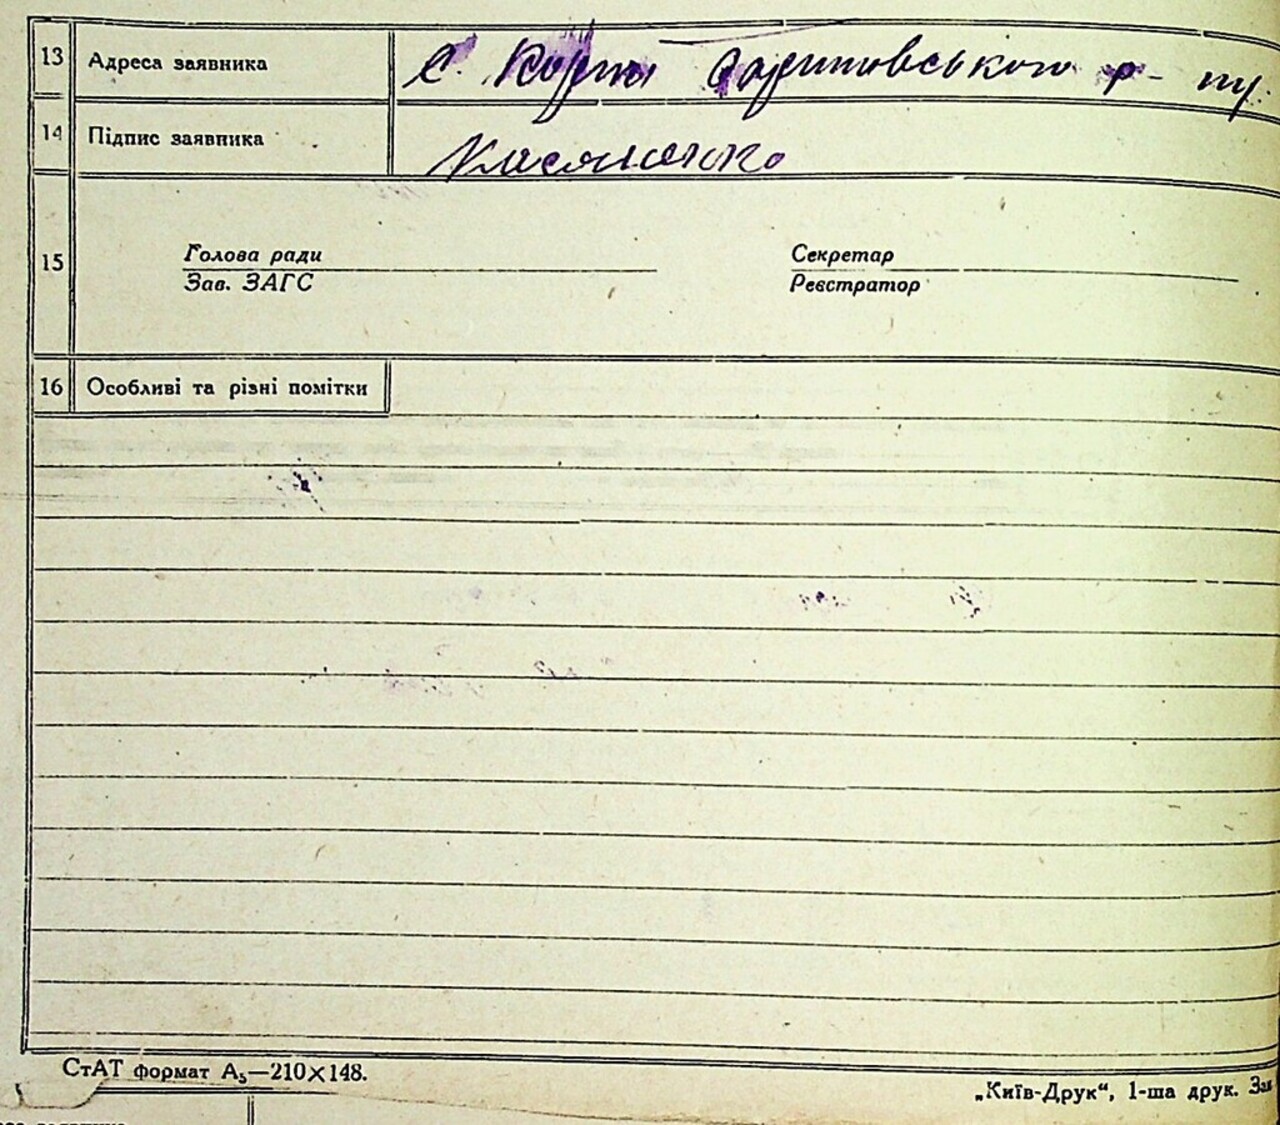 13 Адреса заявника С. Корти Баришовського р-ну.
14 Підпис заявника Касяненко
15
Голова ради Секретар
Зав. ЗАГС Реєстратор
16 Особливі та різні помітки
СтАТ формат А₅—210×148.
„Київ-Друк“, 1-ша друк. Зак